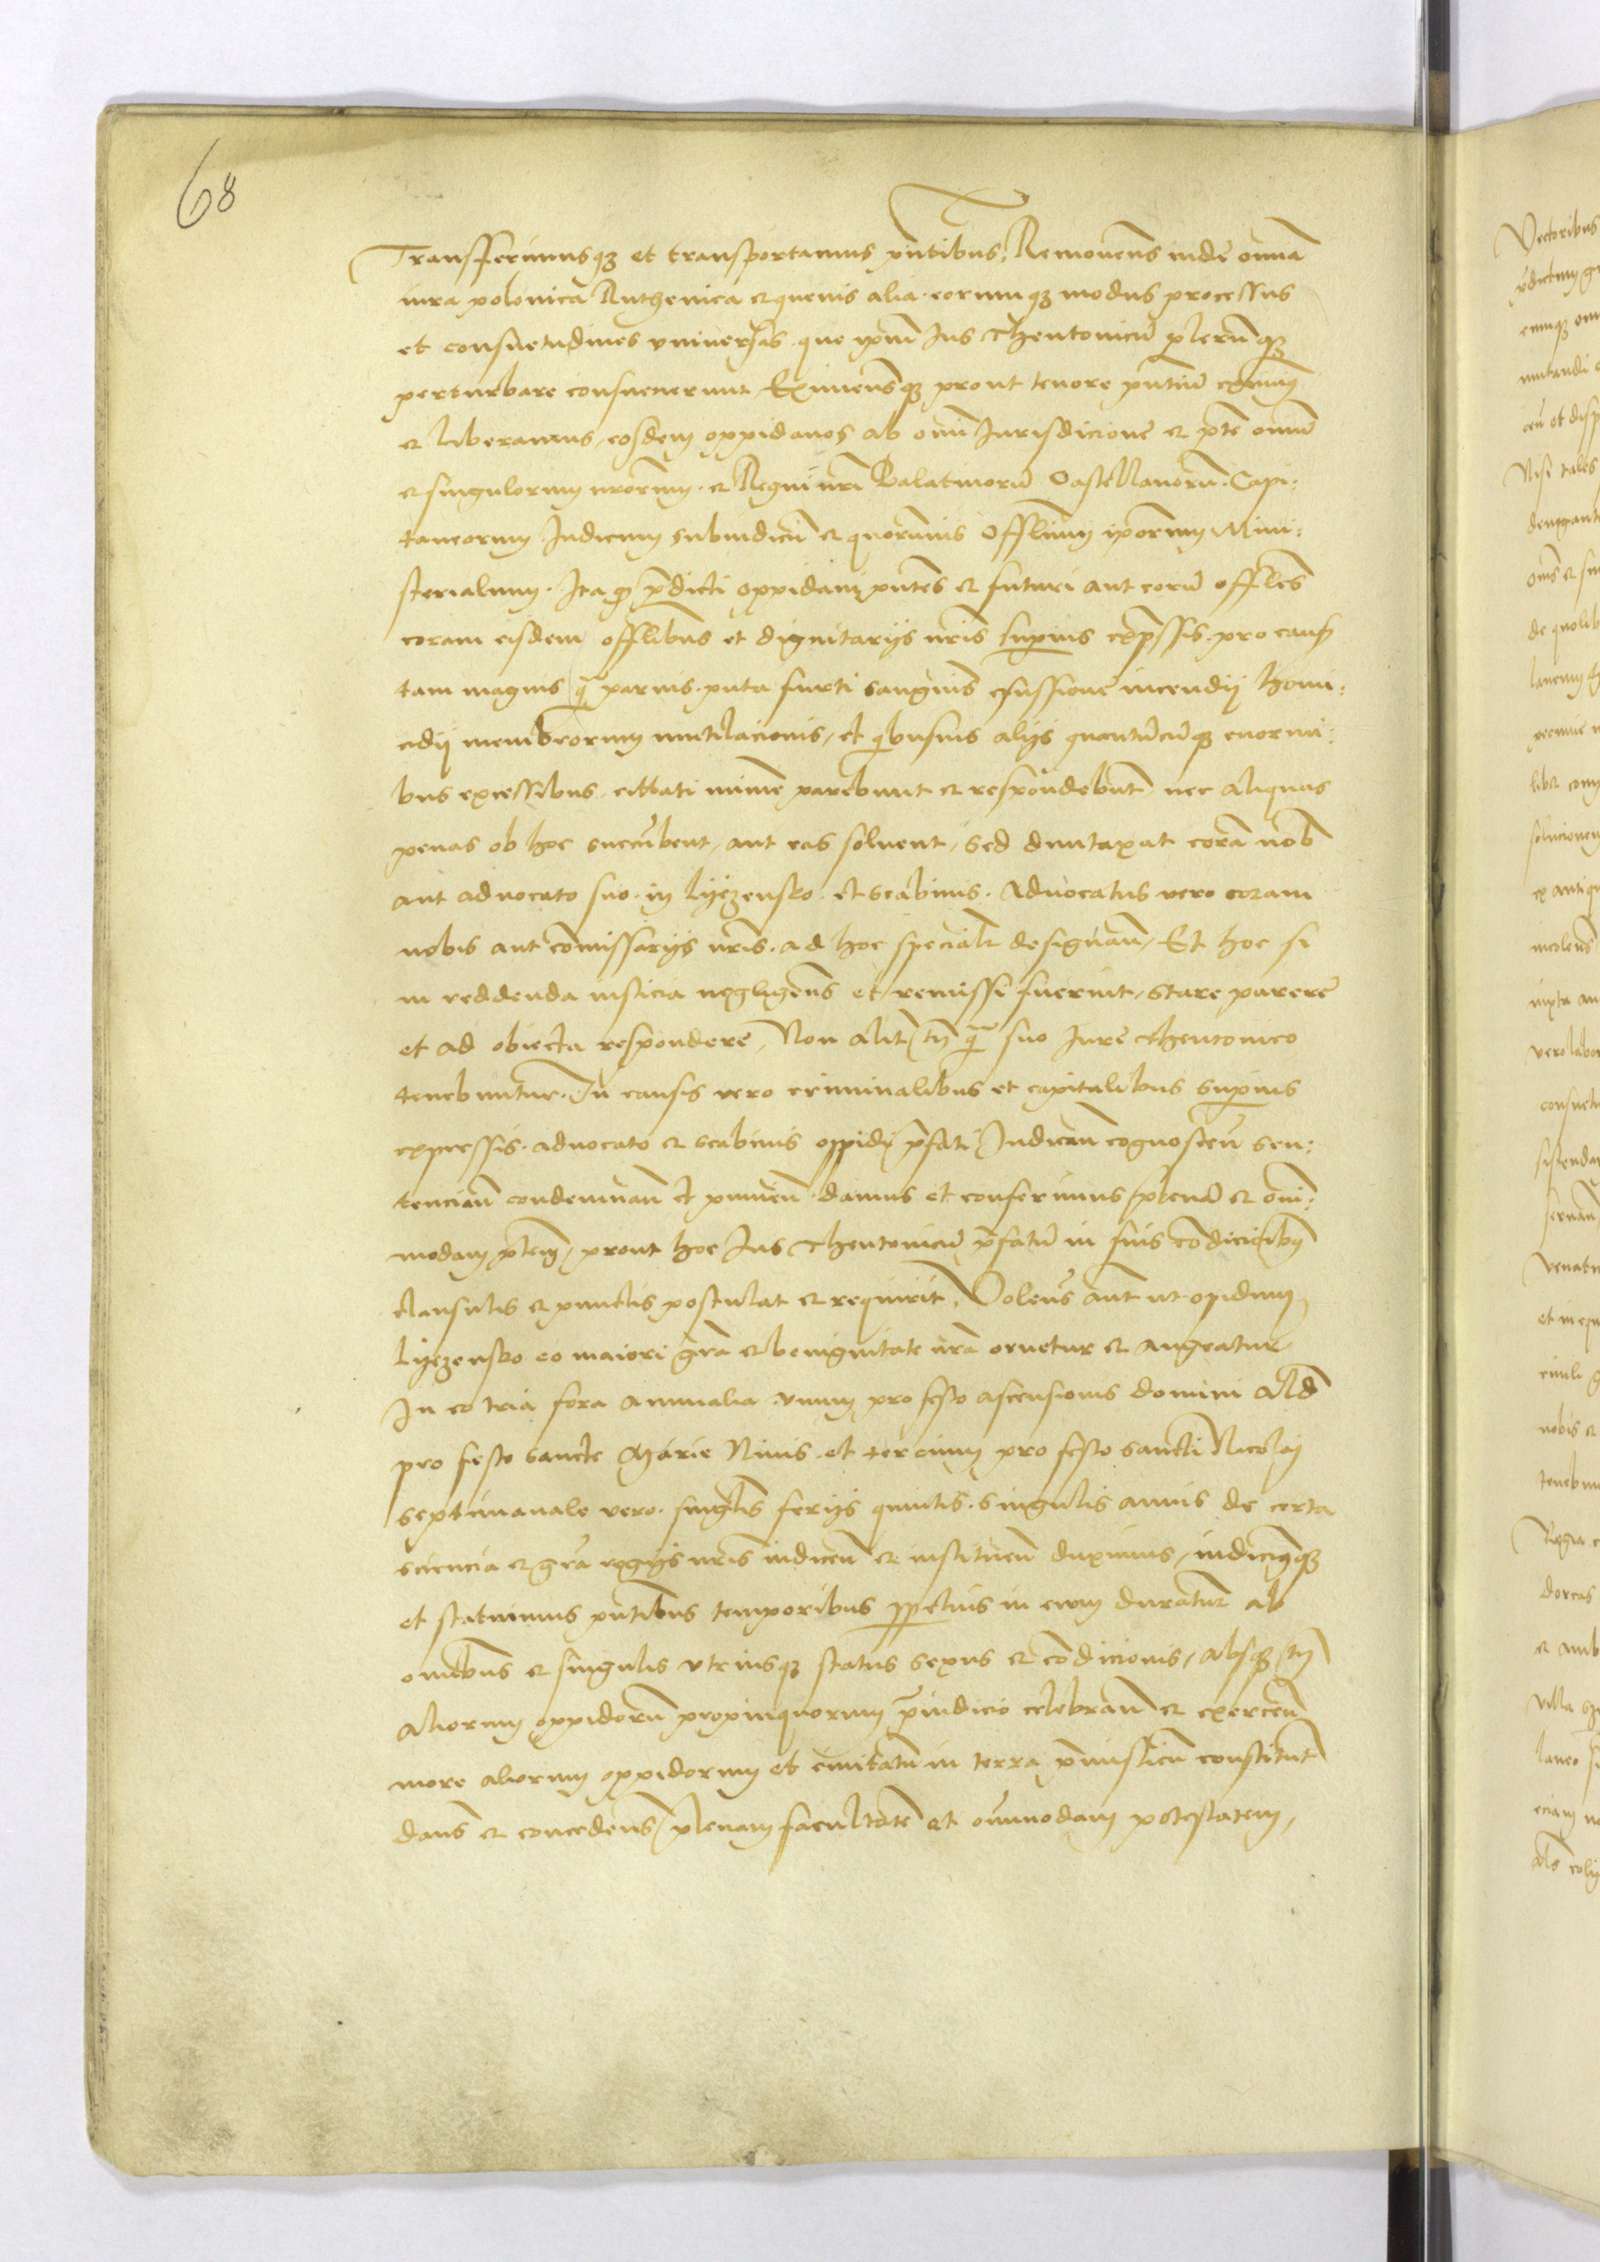 68
Transferimusq3 et transportamus pntibus, Removens inde omnia
iura polonica Ruthenica et quevis alia. eorumq3 modus processus
et consuetudines universas. que ipsum Ius Theutonicu plerumq3
perturbare consueuerunt. Eximensq3 prout tenore pntium eximim9
et liberamus, eosdem oppidanos ab omni Iurisdicione et ptte omniu
et singulorum nrorum. et Regni nri Palatinoru Castellanoru. Capi:
taneorum Iudicum subiudicu et quorumuis Offlium ipsorum Mini:
sterialium. Ita q predicti oppidani pntes et futuri aut eoru offles
coram eisdem offlibus et dignitarijs nris superius expssis. pro causis
tam magnis q paruis. puta furti sangwinis effussione incendij homi:
cidij membrorum mutilacionis, et quibusuis alijs quantucunq3 enormi:
bus excessibus. cittati minime parebunt et respondebunt nec aliquas
penas ob hoc succubent, aut eas soluent, sed duntaxat cora nob
aut aduocato suo in Lyezensko. et scabinis. Aduocatus vero coram
nobis aut comissarijs nris. ad hoc specialr designan, Et hoc si
in reddenda iusticia negligens et remissi fuerint, stare parere
et ad obiecta respondere, Non alitr tn q suo Iure Theutonico
tenebuntur. In causis vero criminalibus et capitalibus superius
expressis. aduocato et scabinis oppidi pfati Iudican cognoscen sen:
tencian condemnan et punien. damus et conferimus plena et omi:
modam ptem, prout hoc Ius Theutonicu pfatu in suis condicioibus
clausulis et punctis postulat et requirit. Volens aut ut opidum
Lyezensko eo maiori gra et benignitate nra ornetur et augeatur
In eo tria fora annualia. vnum pro festo ascensionis domini Aliud
pro festo sancte Marie Niuis. et tercium pro festo sancti Nicolai
septimanale vero. singlis ferijs quintis. singulis annis de certa
sciencia et gra regijs nris indicen et instituen duximus, indicimusq3
et statuimus pntibus temporibus perpetuis in ewm duratur ab
omibus et singulis vtriusq3 status sexus et condicionis, absq3 tn
aliorum oppidoru propinquorum preiudicio celebran et exercen
more aliorum oppidorum et ciuitatu in terra premislien constitut
dans et concedens plenam facultate et omnimodam potestatem,